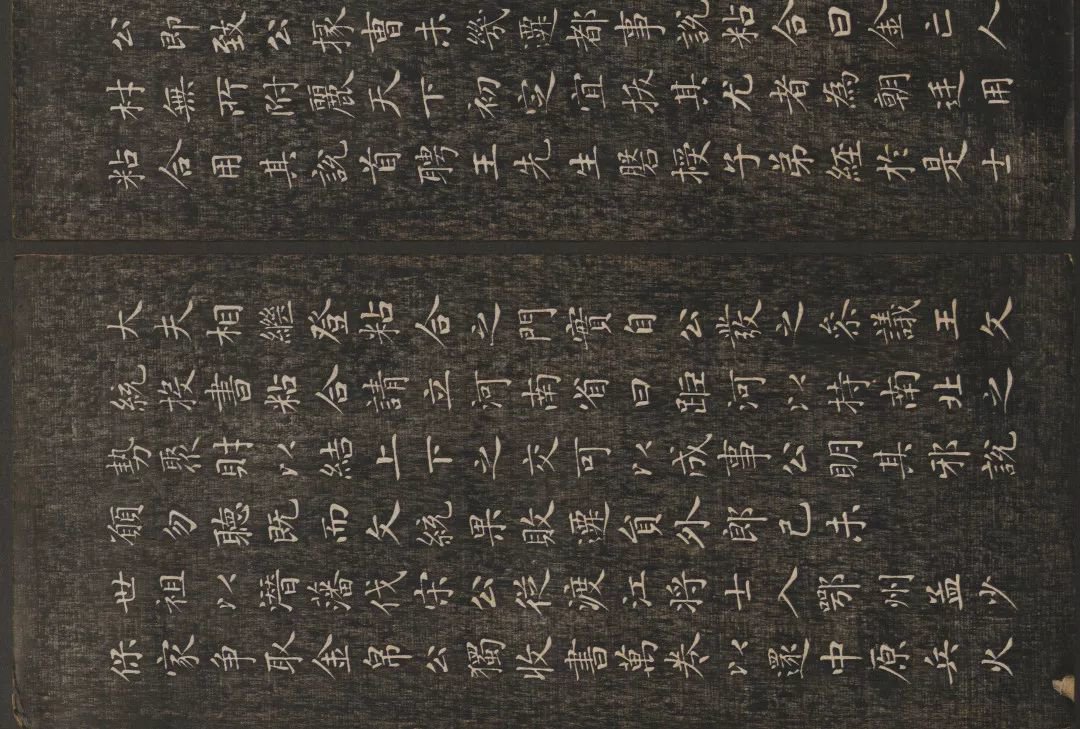 公即致公掾曹未幾選都事說粘合曰金亡人
材無所附麗天下初定宜扶其尤者為朝廷用
粘合用其說首聘王先生磐授子弟經於是士
大夫相繼登粘合之門實自公發之參議王文
統投書粘合請立河南省曰距河以持南北之
勢聚財以結上下之交可以成事公明其邪說
願勿聽既而文統果敗遷員外郎己未
世祖以潛藩伐宋公從渡江將士入鄂州孟少
保家爭取金帛公獨收書萬卷以還中原兵火